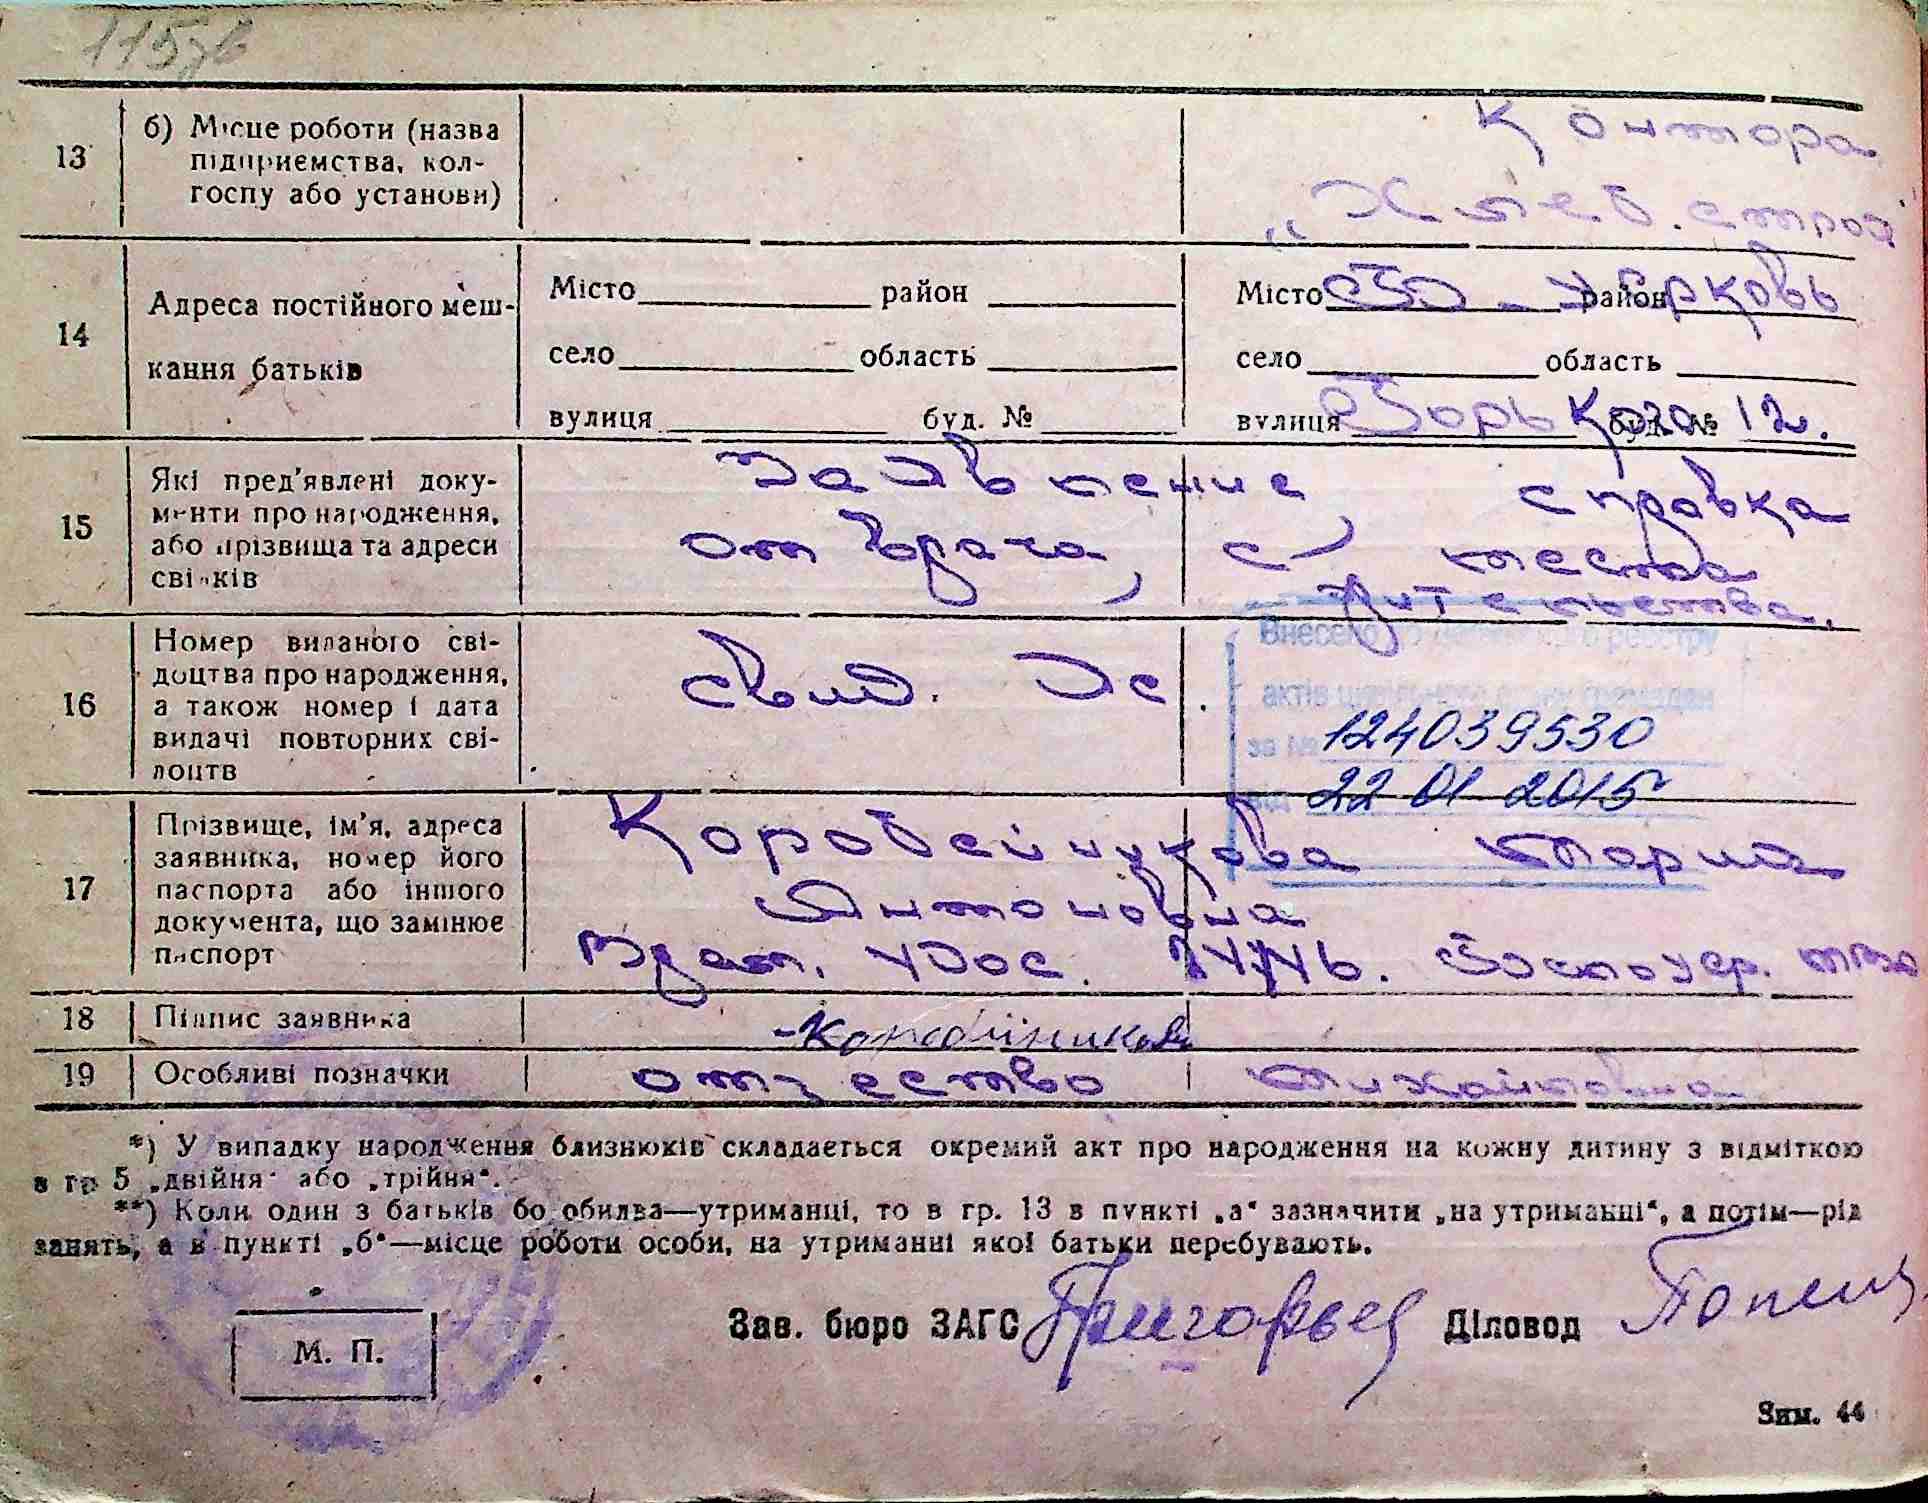 115
13 б) Місце роботи (назва
підприємства, кол-
госпу або установи)
Контора
„Хлеб. строй
14 Адреса постійного меш-
кання батьків
Місто район
село область
вулиця буд. №
Місто Б - Церковь район
село область
вулиця Горького буд. № 12.
15 Які пред'явлені доку-
менти про народження,
або прізвища та адреси
свідків
Заявление, справка
от врача, с места
жительства.
16 Номер виданого сві-
доцтва про народження,
а також номер і дата
видачі повторних сві-
доцтв
свид. Же
Внесено до Державного реєстру
актів цивільного стану громадян
за № 124039530
від 22 01 2015
17 Прізвище, ім'я, адреса
заявника, номер його
паспорта або іншого
документа, що замінює
паспорт
Коробейникова Мария
Антоновна
18 Підпис заявника
Коробейникова
19 Особливі позначки
отчество Михайловна
*) У випадку народження близнюків складається окремий акт про народження на кожну дитину з відміткою
в гр 5 „двійня" або „трійня".
**) Коли один з батьків бо обидва—утриманці, то в гр. 13 в пункті „а" зазначити „на утриманні", а потім—рід
занять, а в пункті „б"—місце роботи особи, на утриманні якої батьки перебувають.
М. П.
Зав. бюро ЗАГС Григорьев Діловод
Зим. 44